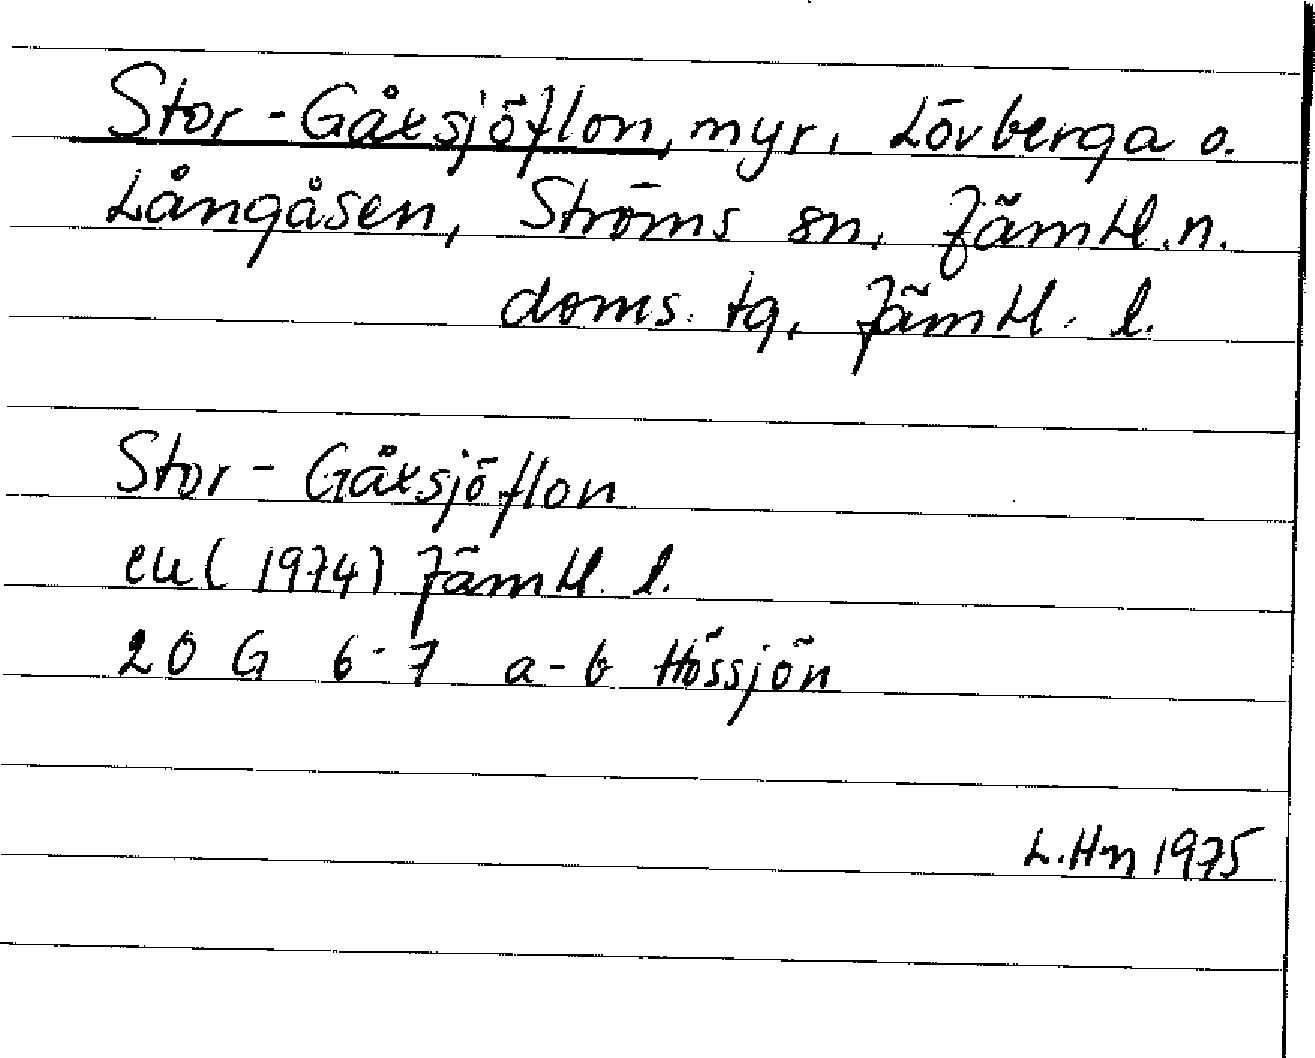 Stor-Gåxsjöflon, myr, Lövberga o.
Långåsen, Ströms sn, Jämtl.n.
doms. tg, Jämtl. l.
Stor-Gåxsjöflon
ek (1974) Jämtl. l.
20 G 6-7 a-b Hössjön
L.Hn 1975